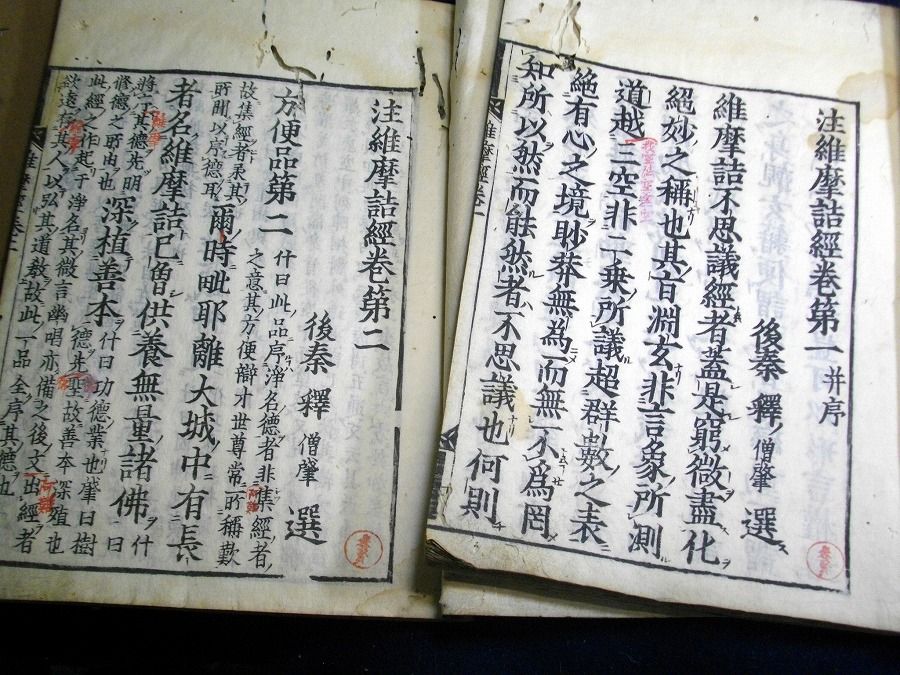 注維摩詰經卷第一并序
後秦釋僧肇選
維摩詰不思議經者蓋是窮微盡化
絕妙之稱也其旨淵玄非言象所測
道越三空非二乗所議超群數之表
絶有心之境眇莽無為而無不為罔
知所以然而能然者不思議也何則
維摩經卷一
注維摩詰經卷第二
後秦釋僧肇選
方便品第二什曰此品序淨名德者非集經者
之意其方便辯才世尊常所稱歎
故集經者承其
所聞以序德耳
爾時毗耶離大城中有長
者名維摩詰已曾供養無量諸佛什曰
將序其德先明
修德之所由也
深植善本什曰功德業也肇曰樹
德先聖故善本深殖也
此經之作起于淨名其微言幽唱亦備之後文出經者
欲遠存其人以弘其道教故此一品全序其德也
維摩經卷二